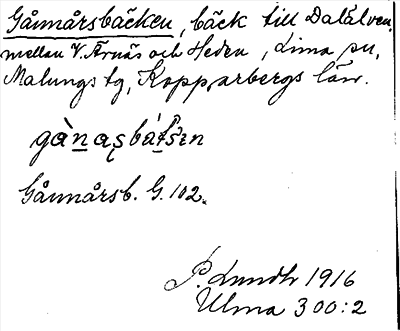 Gånnårsbäcken, bäck till Dalälven
mellan V. Ärnäs och Heden, Lima sn,
Malungs tg, Kopparbergs län.
Gånnårsb. G. 102.
P. Lundh 1916
Ulma 300:2